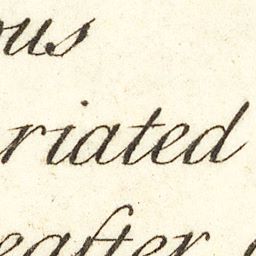 ous
riated
eafter